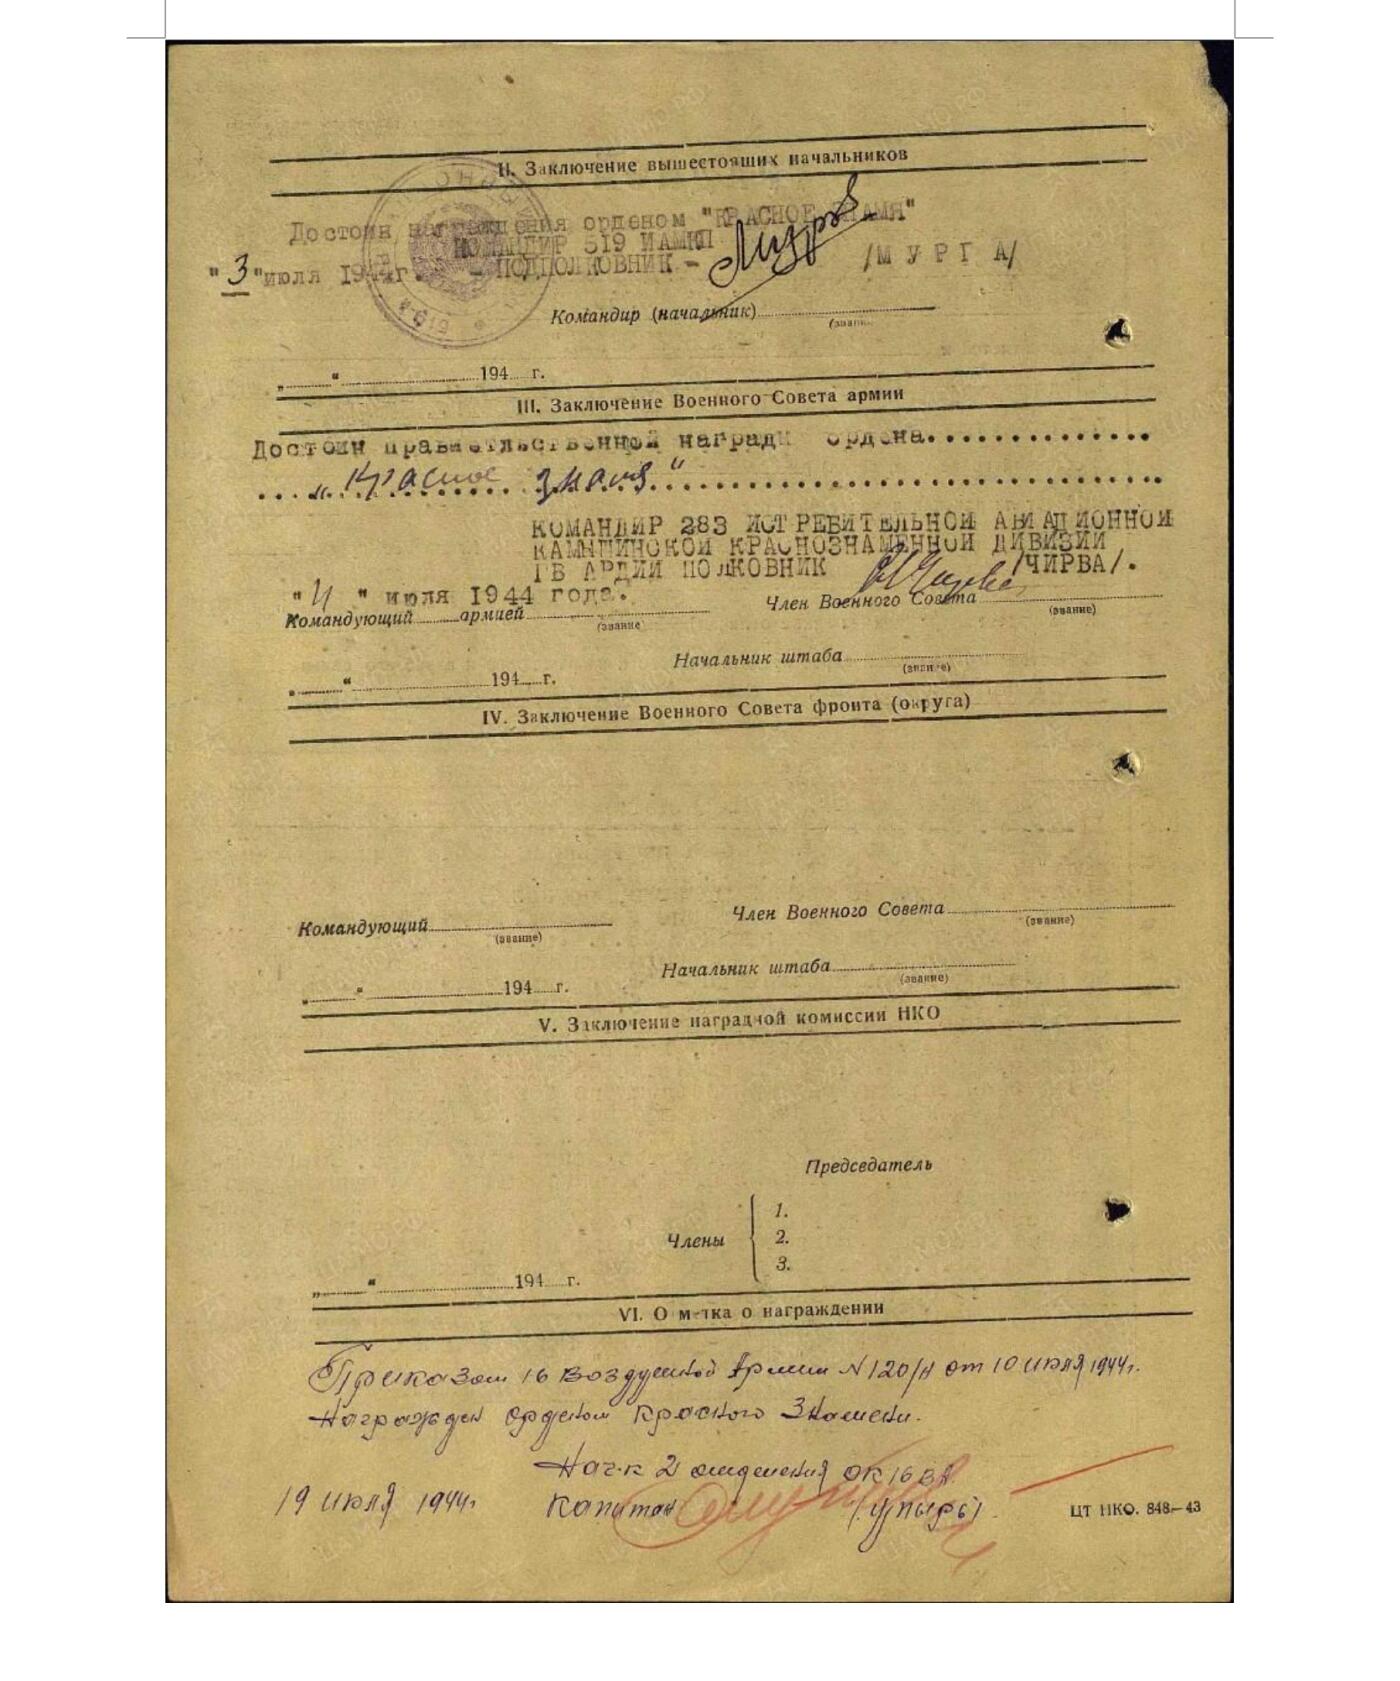 II. Заключение вышестоящих начальников
Достоин награждения орденом "КРАСНОЕ ЗНАМЯ"
КОМАНДИР 519 ИАМКП
"3" июля 1944г. - ПОДПОЛКОВНИК - /МУРГА/
Командир (начальник)
(звание)
„ “ 194 г.
III. Заключение Военного Совета армии
Достоин правительственной награды ордена..............
...."Красное знамя"...............
КОМАНДИР 283 ИСТРЕБИТЕЛЬНОЙ АВИАЦИОННОЙ
КАМЫШИНСКОЙ КРАСНОЗНАМЕННОЙ ДИВИЗИИ
ГВАРДИИ ПОЛКОВНИК /ЧИРВА/.
"4" июля 1944 года.
Командующий армией Член Военного Совета
(звание) (звание)
Начальник штаба
(звание)
„ “ 194 г.
IV. Заключение Военного Совета фронта (округа)
Командующий Член Военного Совета
(звание) (звание)
Начальник штаба
(звание)
„ “ 194 г.
V. Заключение наградной комиссии НКО
Председатель
1.
Члены 2.
3.
„ “ 194 г.
VI. О м тка о награждении
Приказом 16 Воздушной Армии N 120/н от 10 июля 1944г.
Награжден орденом Красного Знамени.
Нач-к 2 отделения ОК 16 ВА
19 июля 1944г. Капитан (Упырь)
ЦТ НКО. 848—43